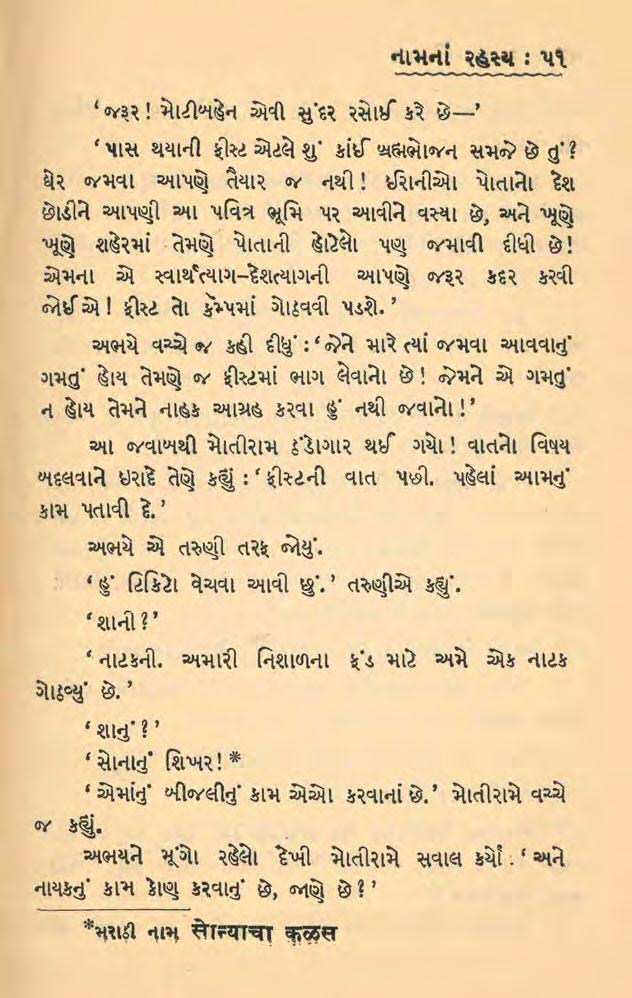 નામનાં રહસ્ય : ૫૧
‘જરૂર! મોટીબહેન એવી સુંદર રસોઈ કરે છે—’
‘પાસ થયાની ફીસ્ટ એટલે શું કાંઈ બ્રહ્મભોજન સમજે છે તું?
ઘેર જમવા આપણે તૈયાર જ નથી! ઈરાનીઓ પોતાનો દેશ
છોડીને આપણી આ પવિત્ર ભૂમિ પર આવીને વસ્યા છે, અને ખૂણે
ખૂણે શહેરમાં તેમણે પોતાની હોટેલો પણ જમાવી દીધી છે!
એમના એ સ્વાર્થત્યાગ-દેશત્યાગની આપણે જરૂર કદર કરવી
જોઈએ! ફીસ્ટ તો કૅમ્પમાં ગોઠવવી પડશે.’
અભયે વચ્ચે જ કહી દીધું : ‘જેને મારે ત્યાં જમવા આવવાનું
ગમતું હોય તેમણે જ ફીસ્ટમાં ભાગ લેવાનો છે! જેમને એ ગમતું
ન હોય તેમને નાહક આગ્રહ કરવા હું નથી જવાનો!’
આ જવાબથી મોતીરામ ઠંડોગાર થઈ ગયો! વાતનો વિષય
બદલવાને ઇરાદે તેણે કહ્યું : ‘ફીસ્ટની વાત પછી. પહેલાં આમનું
કામ પતાવી દે.’
અભયે એ તરુણી તરફ જોયું.
‘હું ટિકિટો વેચવા આવી છું.’ તરુણીએ કહ્યું.
‘શાની?’
‘નાટકની. અમારી નિશાળના ફંડ માટે અમે એક નાટક
ગોઠવ્યું છે.’
‘શાનું?’
‘સોનાનું શિખર! *
‘એમાંનું બીજલીનું કામ એઓ કરવાનાં છે.’ મોતીરામે વચ્ચે
જ કહ્યું.
અભયને મૂંગો રહેલો દેખી મોતીરામે સવાલ કર્યો : ‘અને
નાયકનું કામ કોણ કરવાનું છે, જાણે છે?’
*મરાઠી નામ सोन्याचा कळस